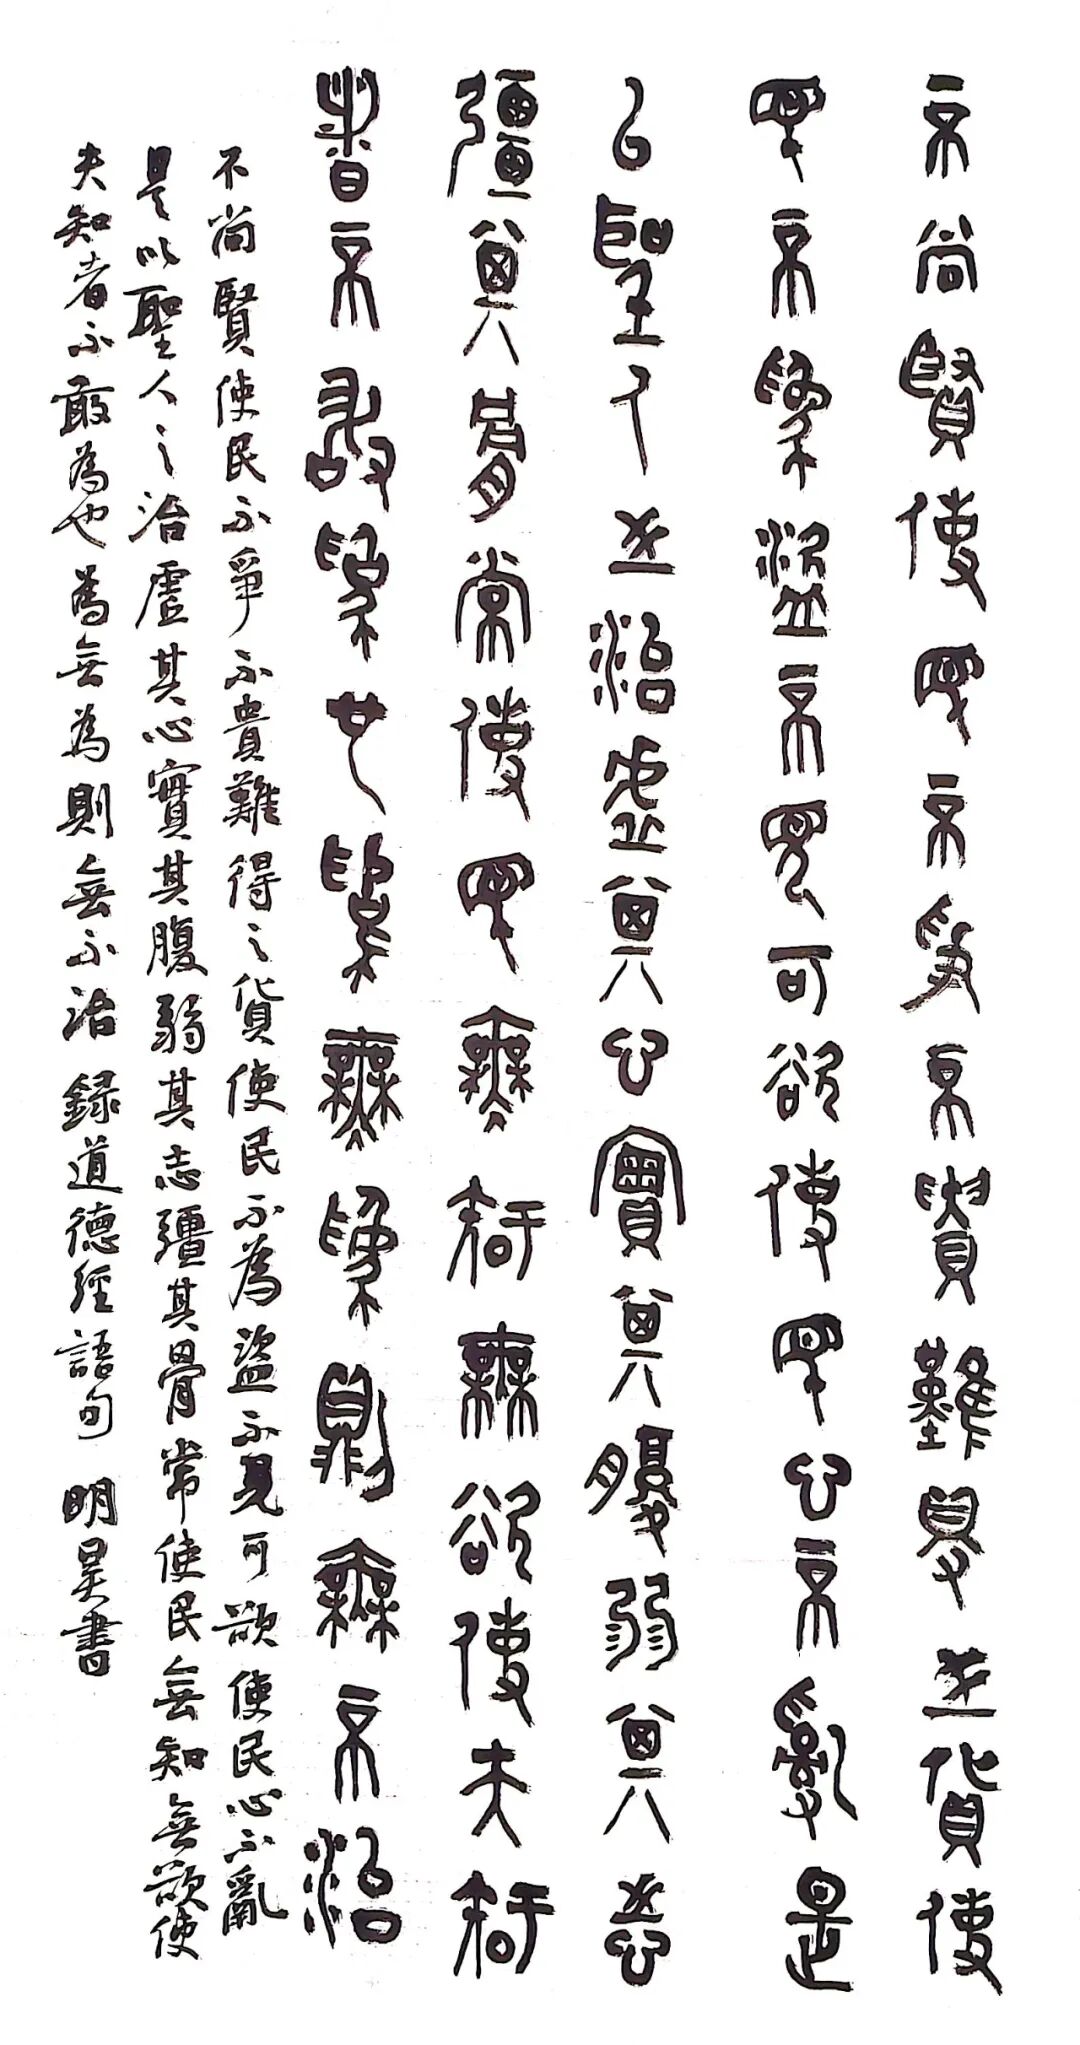 不尚賢使民不爭不貴難得之貨使
民不為盜不見可欲使民心不亂是
以聖人之治虛其心實其腹弱其志
彊其骨常使民無知無欲使夫知
者不敢為也為無為則無不治
不尚賢使民不爭不貴難得之貨使民不為盜不見可欲使民心不亂
是以聖人之治虛其心實其腹弱其志彊其骨常使民無知無欲使
夫知者不敢為也為無為則無不治 錄道德經語句 明昊書